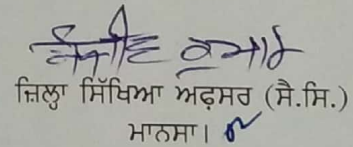 ਕੁਮਾਰ
ਜ਼ਿਲ੍ਹਾ ਸਿੱਖਿਆ ਅਫ਼ਸਰ (ਸੈ.ਸਿ.)
ਮਾਨਸਾ।